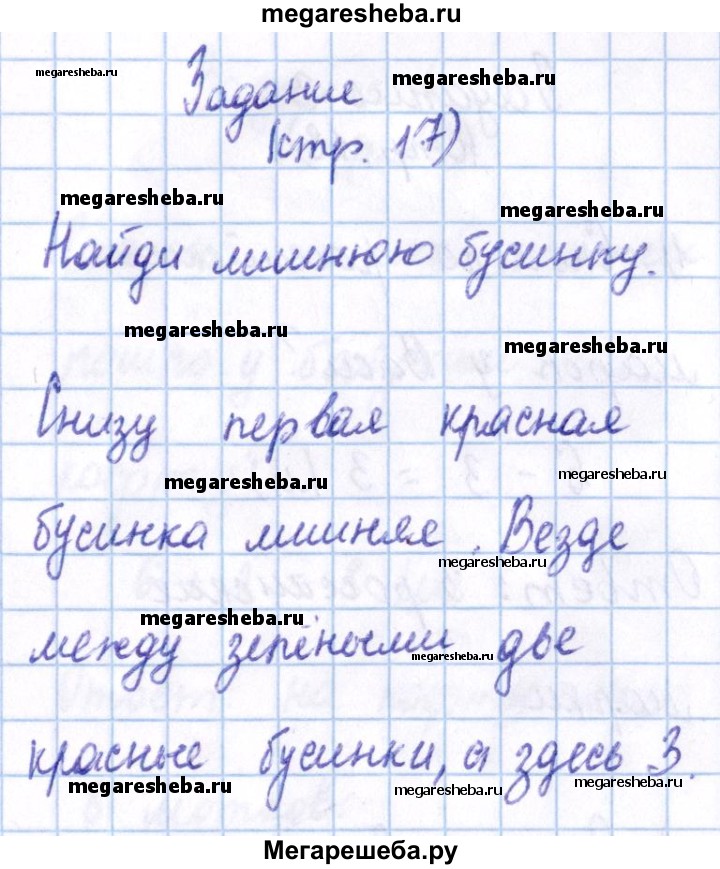 megaresheba.ru
megaresheba.ru
Задание megaresheba.ru
(стр. 17)
megaresheba.ru
megaresheba.ru
Найди лишнюю бусинку.
megaresheba.ru
megaresheba.ru
Снизу первая красная
megaresheba.ru
megaresheba.ru
бусинка лишняя. Везде
megaresheba.ru
megaresheba.ru
между зелёными две
megaresheba.ru
красные бусинки, а здесь 3.
megaresheba.ru
megaresheba.ru
megaresheba.ru
Мегарешеба.ру